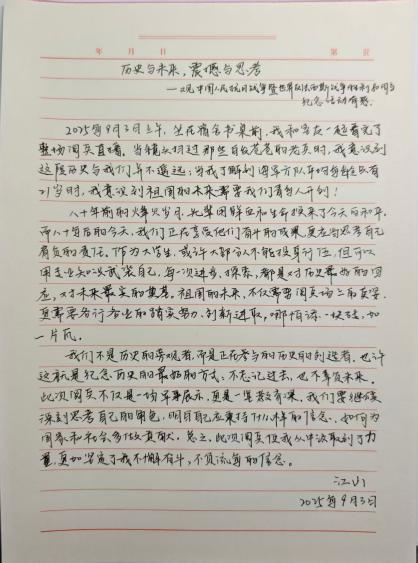 年 月 日 第 页
历史与未来，震撼与思考
——观中国人民抗日战争暨世界反法西斯战争胜利80周年
纪念活动有感
2025年9月3日上午，坐在宿舍书桌前，我和舍友一起看完了
整场阅兵直播。当镜头对过那些白发苍苍的老兵时，我意识到
这段历史与我们并不遥远；当我了解到阅兵方队平均年龄只有
21岁时，我意识到祖国的未来需要我们青年人开创！
八十年前的烽火岁月，先辈用鲜血和生命换来了今天的和平。
而八十年后的今天，我们正在享受他们奋斗的成果，更应当思考自己
肩负的责任。作为大学生，或许大部分人不能投身行伍，但可以
用专业知识武装自己，每一次进步、探索，都是对历史最好的回
应，对未来最实的奠基。祖国的未来，不仅需要阅兵场上的英姿，
更需要各行各业的踏实努力、创新进取，哪怕添一块砖，加
一片瓦。
我们不是历史的旁观者，而是正在参与的历史的创造者，也许
这就是纪念历史的最好的方式：不忘记过去，也不辜负未来。
此次阅兵不仅是一场军事展示，更是一堂教育课。我们要继续
深刻思考自己的角色，明白自己应秉持什么样的信念，如何为
国家和社会多做贡献。总之，此次阅兵让我从中汲取到了力
量，更加坚定了我不懈奋斗，不负流年的信念。
江山
2025年9月3日